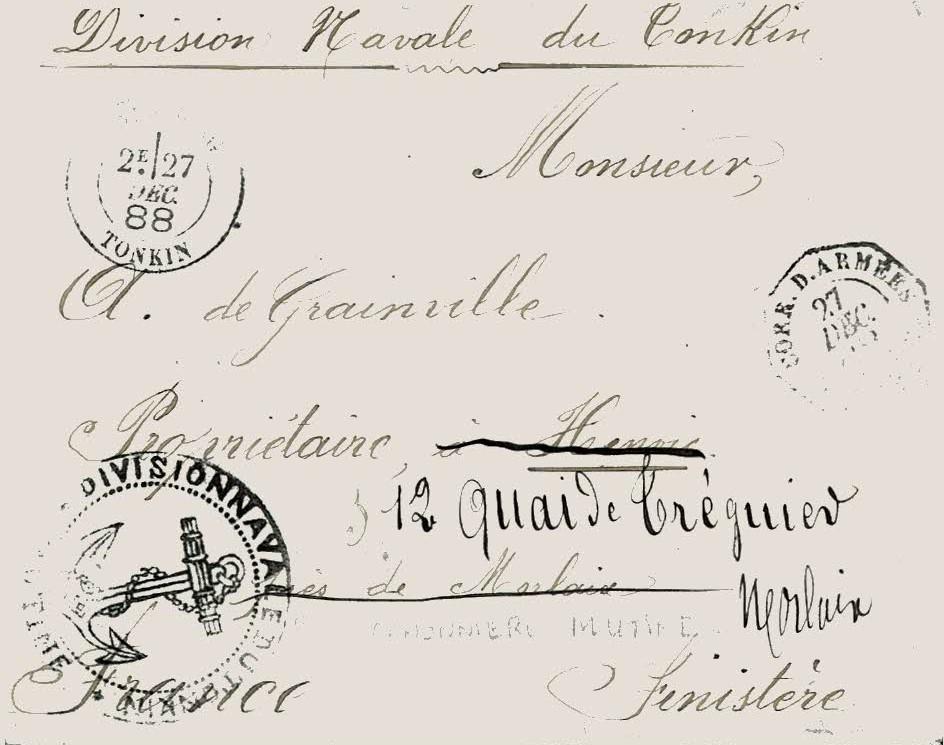 Division Navale du Tonkin
Monsieur,
2E/27
DEC.
88
TONKIN
A. de Grainville.
CORR. D. ARMÉES
27
DEC.
Propriétaire, à Henvic
DIVISION NAVALE DU TONKIN
12 Quai de Tréguier
près de Morlaix
Morlaix
MUTINE
France Finistère